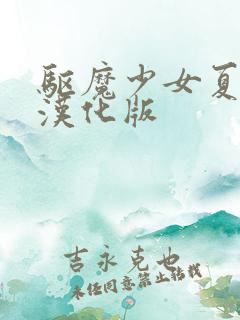 驅魔少女夏
漢化版
吉永克也
未任同意禁止轉載